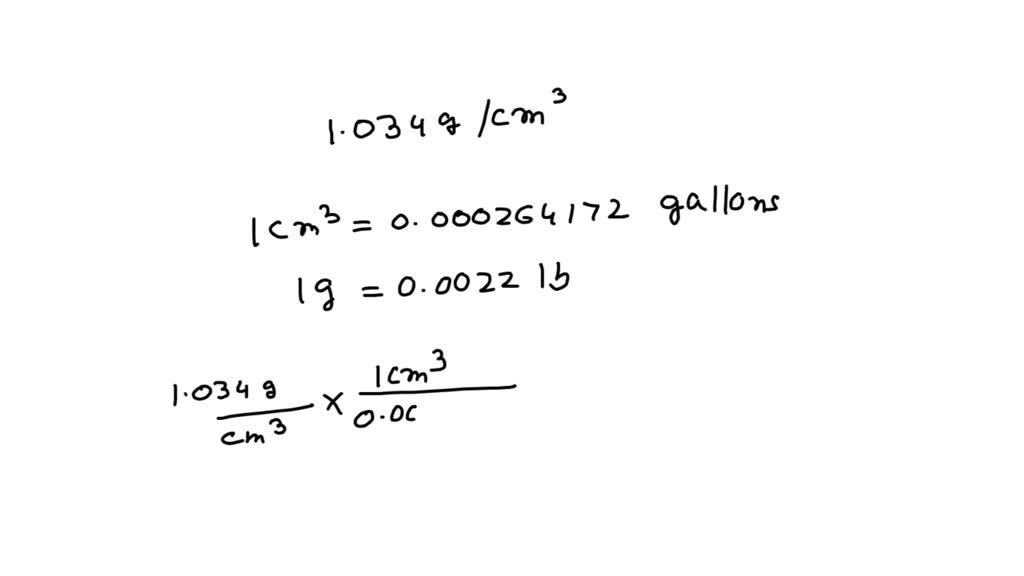 1.034 g /cm³
1 cm³ = 0.000264172 gallons
1g = 0.0022 lb
1.034 g / cm³ × 1 cm³ / 0.0c